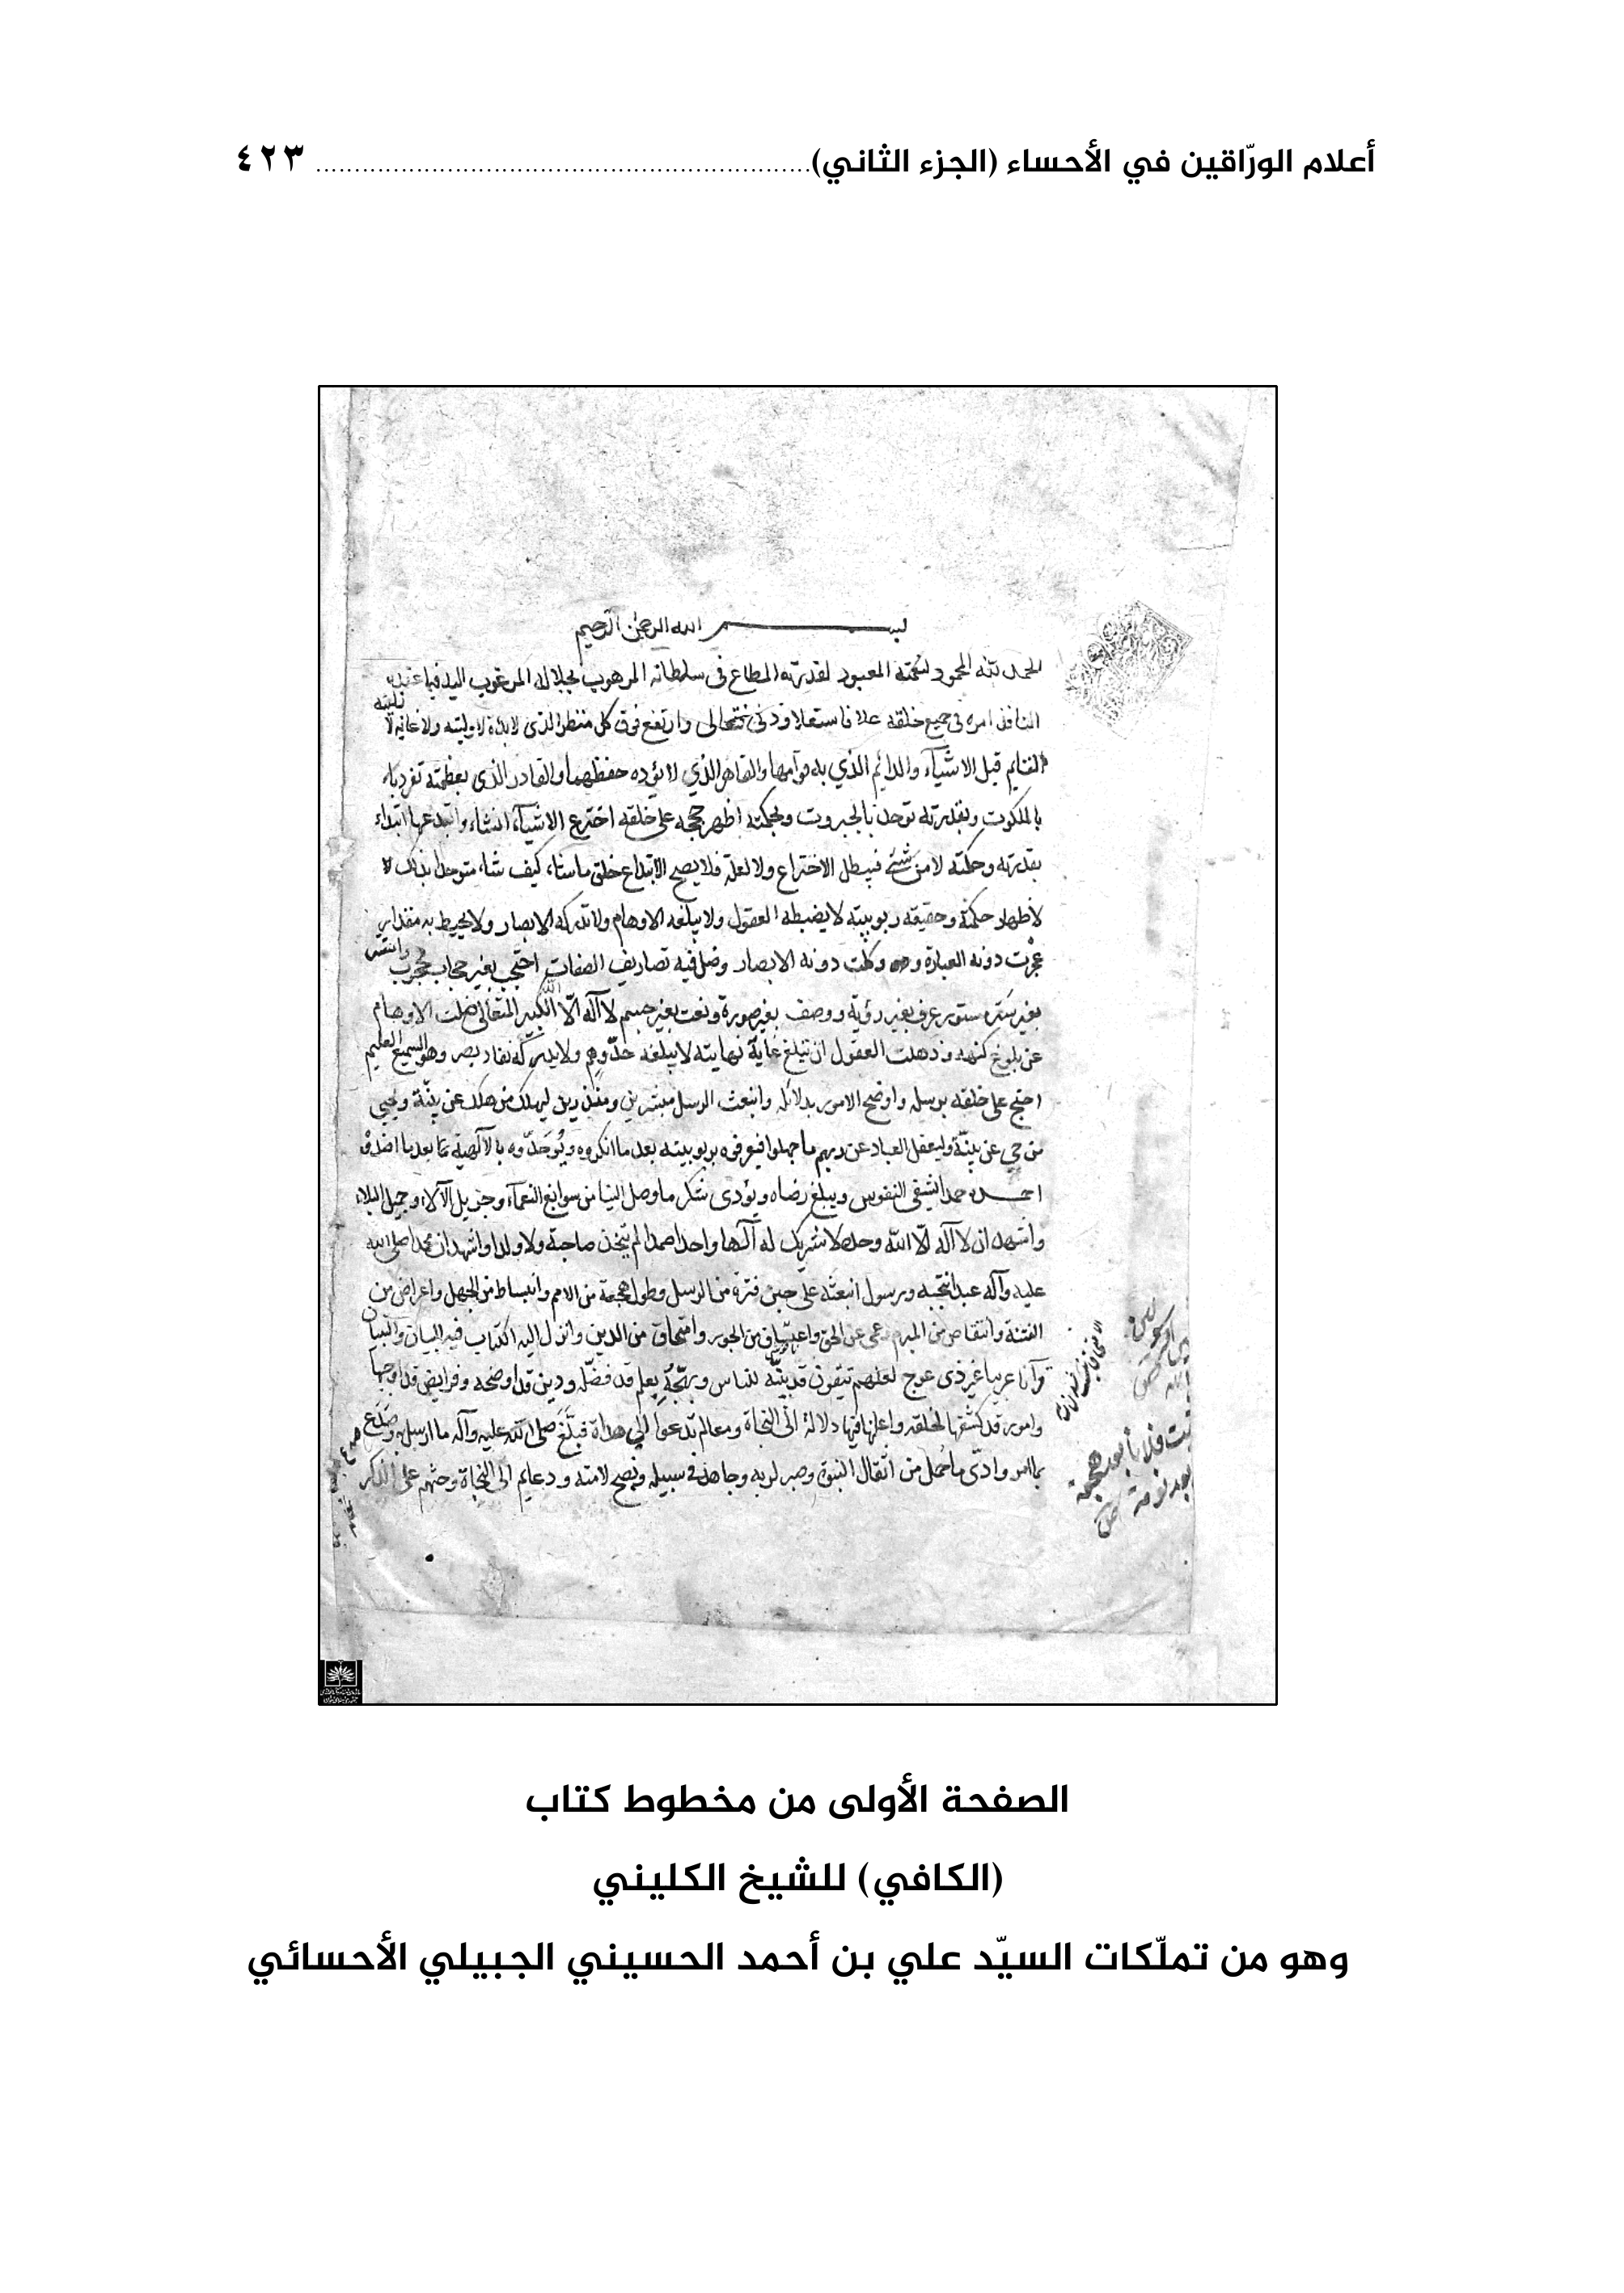 أعلام الورّاقين في الأحساء (الجزء الثاني) ................................................................ ٤٢٣
بسم الله الرحمن الرحيم
الحمد لله المحمود لنعمته المعبود لقدرته المطاع في سلطانه المرهوب لجلاله المرغوب اليه فيما عنده
النافذ امره في جميع خلقه علا فاستعلا ودنى فتعالى وارتفع فوق كل منظر الذي لا بدء لاوليته ولا غاية لا
زليته
القايم قبل الاشياء والدايم الذي به قوامها والقاهر الذي لا يؤده حفظهما والقادر الذي بعظمته تفرد
بالملكوت وبقدرته توحد بالجبروت وبحكمته اظهر حججه على خلقه اخترع الاشياء انشاء وابتدعها ابتداء
بقدرته وحكمته لا من شئ فيبطل الاختراع ولا لعلة فلا يصح الابتداع خلق ما شاء كيف شاء متوحدا بذلك
لاظهار حكمته وحقيقه ربوبيته لا يضبطه العقول ولا يبلغه الاوهام ولا تدركه الابصار ولا يحيط به مقدار
عجزت دونه العبارة وكلت دونه الابصار وضل فيه تصاريف الصفات احتجب بغير حجاب محجوب واستتر
بغير ستر مستور عرف بغير رؤية ووصف بغير صورة ونعت بغير جسم لا اله الا الله الكبير المتعالى ضلت الاوهام
عن بلوغ كنهه وذهلت العقول ان تبلغ غاية نهايته لا يبلغه حد وهم ولا يدركه نفاد بصر وهو السميع العليم
احتج على خلقه برسله واوضح الامور بدلائله وابتعث الرسل مبشرين ومنذرين ليهلك من هلك عن بينة ويحيى
من حي عن بينة وليعقل العباد عن ربهم ما جهلوا فيعرفوه بربوبيته بعد ما انكروه ويوحدوه بالالهية بعد ما
احمده حمدا يشفى النفوس ويبلغ رضاه ويؤدى شكر ما وصل الينا من سوابغ النعماء وجزيل الآلاء وجميل البلاء
واشهد ان لا اله الا الله وحده لا شريك له الها واحدا صمدا لم يتخذ صاحبة ولا ولدا واشهد ان محمدا صلى الله
عليه وآله عبد انتجبه ورسول ابتعثه على حين فترة من الرسل وطول هجعة من الامم وانبساط من الجهل واعراض من
الفتنة وانتقاض من المبرم وعمى عن الحق واعتساف من الجور وامتحاق من الدين وانزل اليه الكتاب فيه البيان والتبيان
قرآنا عربيا غير ذى عوج لعلهم يتقون قد بينه للناس ونهجه بعلم قد فصله ودين قد اوضحه وفرايض قد اوجبها
وامور قد كشفها لخلقه واعلنها فيها دلالة الى النجاة ومعالم تدعوا الى هداه فبلغ صلى الله عليه وآله ما ارسل به وصدع
بما امر وادى ما حمل من اثقال النبوة وصبر لربه وجاهد في سبيله ونصح لامته ودعاهم الى النجاة وحثهم على الذكر
الصفحة الأولى من مخطوط كتاب
(الكافي) للشيخ الكليني
وهو من تملّكات السيّد علي بن أحمد الحسيني الجبيلي الأحسائي